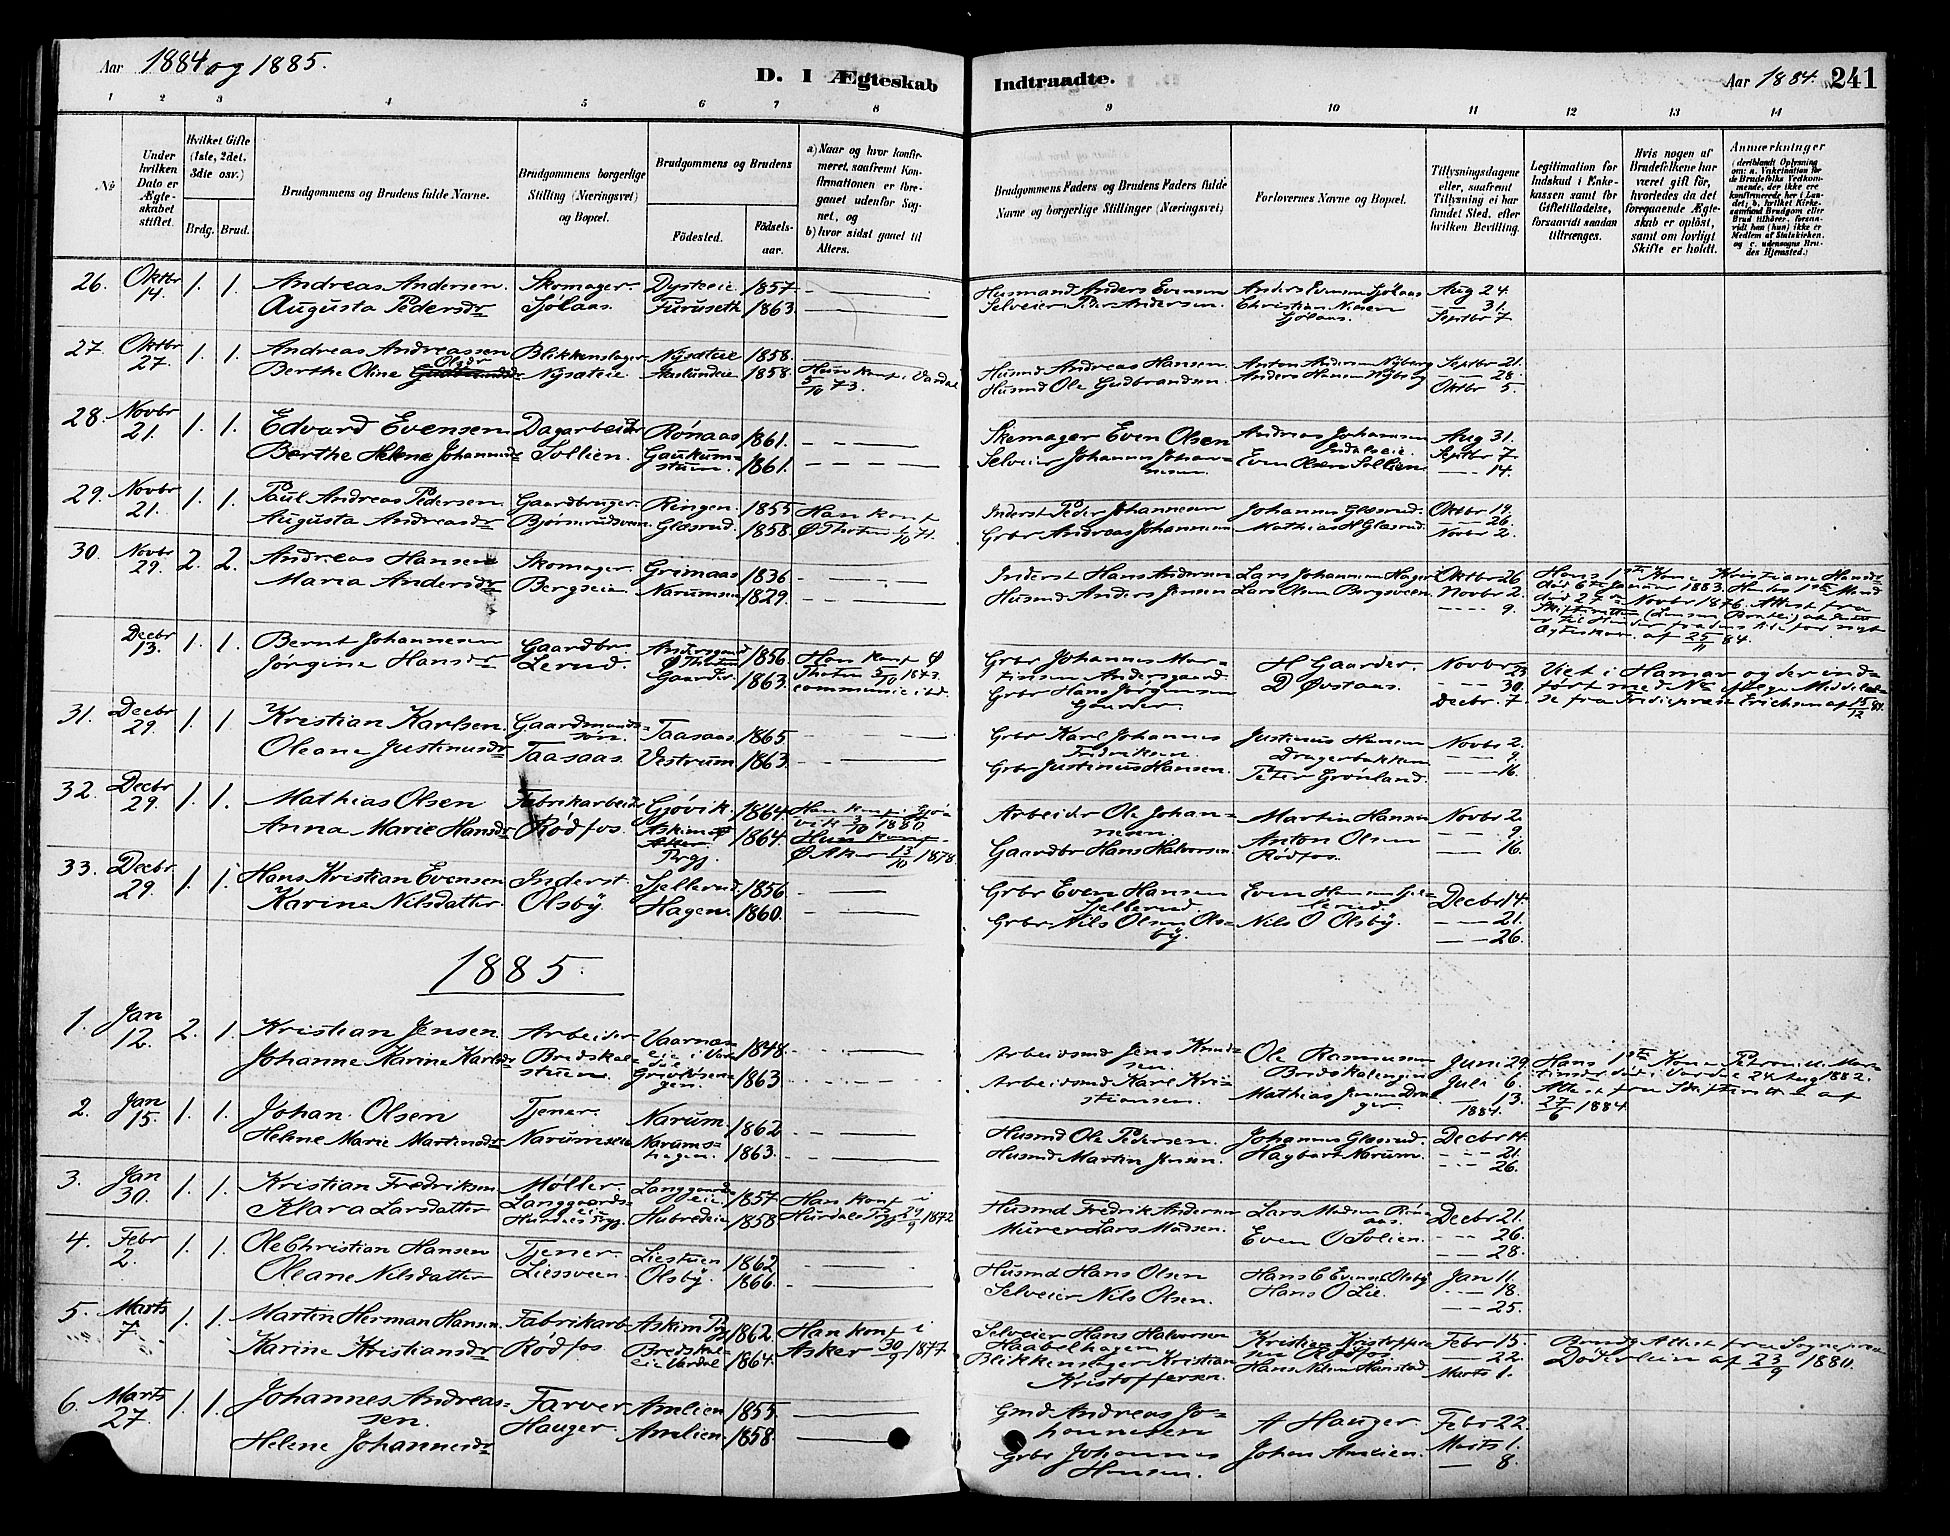 Aar 1884 og 1885.
D. 1 Ægteskab Indtraadte.
Aar 1884. 241
1 2 3 4 5 6 7 8 9 10 11 12 13 14
No
Under hvilken Dato er Ægteskabet stiftet.
Hvilket Gifte (1ste, 2det, 3die osv.)
Brdg. Brud.
Brudgommens og Brudens fulde Navne.
Brudgommens borgerlige Stilling (Næringsvei) og Bopæl.
Brudgommens og Brudens
Fødested. Fødsels-aar.
a) Naar og hvor konfirmeret, saafremt Konfirmationen er foregaaet udenfor Sognet, og
b) hvor sidst gaaet til Alters.
Brudgommens Faders og Brudens Faders fulde Navne og borgerlige Stillinger (Næringsvei)
Forlovernes Navne og Bopæl.
Tillysningsdagene eller, saafremt Tillysning ei har fundet Sted, efter hvilken Bevilling.
Legitimation for Indskud i Enkekassen samt for Giftetilladelse, forsaavidt saadan tiltrænges.
Hvis nogen af Brudefolkene har været gift før, hvorledes da det foregaaende Ægteskab er opløst, samt om lovligt Skifte er holdt.
Anmærkninger
26. Oktbr 14. 1. 1. Andreas Andersen. Skomager. Dysteeie 1857
Augusta Pedersdr Sjölaas. Furuseth 1863.
Husmand Anders Evensen Anders Evensen Sjölaas Aug 24.
Selveier Peder Andersen. Christian Nilsen Sjölaas. — 31. Septbr 7
27. Oktbr 27. 1. 1. Andreas Andreassen Blikkenslager Nysæteie 1858.
Berthe Oline Olsdr Nysæteie 1858. Hun konf. i Vardal 5/10 73.
Husmd Andreas Hansen. Anton Andersen Nyberg Septbr 21.
Husmd Ole Gudbrandsen. Anders Hansen Nyberg — 28. Oktbr 5.
28. Novbr 21. 1. 1. Edvard Evensen Dagarbeider Rönaas 1861.
Berthe Helene Johannesdr Sollien. Gaukum-stuen. 1861.
Skomager Even Olsen Andreas Johannesen Aug 31.
Selveier Johannes Johannesen. Even Olsen Sollien Septbr 7 — 14.
29. Novbr 21. 1. 1. Paul Andreas Pedersen Gaardbruger Ringen. 1855 Han konf
Augusta Andreasdr Bjørnerudsveen. Glæsrud. 1858. Ø Thoten 1/10 71.
Inderst Peder Johannesen Johannes Glæsrud. Oktbr 19.
Grbr Andreas Johannesen Mathias H Glæsrud. — 26. Novbr 2.
30. Novbr 29. 2. 2. Andreas Hansen Skomager. Grimaas 1836
Maria Andersdr Bergseie. Narumseie 1829.
Inderst Hans Andersen Lars Johannesen Hager Oktbr 26
Husmd Anders Jensen Lars Olsen Bergsveen. Novbr 2. — 9.
Hans 1ste Kone Kristiane Hansdr
död 6te Januar 1883. Hendes 1ste Mand
död 27de Novbr 1876. Attest fra
af 25/11 84.
Decbr 13. 1. 1. Bernt Johannesen Gaardbr. Andersgaard Ø Thoten 1856. Han konf Ø
Jørgine Hansdr Lerud. Gaarder. 1863. Thoten 5/10 1873.
Grbr Johannes Martinsen Andersgaard. H Gaarder. Novbr 23
Grbr Hans Jörgensen Gaarder. D Øvstaas. — 30. Decbr. 7.
Viet i Hamar og der ind-
ført med No efter Meddelel-
se fra Erichsen af 15/12 84.
31. Decbr 29. 1. 1. Kristian Karlsen. Gaardmands-sön. Taasaas. 1865.
Oleane Justinusdr Taasaas. Vestrum 1863.
Grbr Karl Johannes Fredriksen Justinus Hansen Dragerbakken Novbr 2.
Grbr Justinus Hansen. Peter Grönland. — 9. — 16.
32. Decbr 29. 1. 1. Mathias Olsen Fabrikarbeider Gjövik. 1864. Han konf i Gjövik 3/10 1880.
Anna Marie Hansdr Rödfos. Askim Prgj. 1864. Hun konf Ø Aker 13/10 1878.
Arbeider Ole Johannesen. Martin Hansen Novbr 2
Gaardbr Hans Halvorsen. Anton Olsen Rödfos. — 9. — 16.
33. Decbr 29. 1. 1. Hans Kristian Evensen Inderst. Sjellerud 1856
Karine Nilsdatter. Olsby. Hagen. 1860.
Grbr Even Hansen Sjellerud Even Hansen Sjellerud. Decbr 14.
Grbr Nils Olsen Olsby. Nils O Olsby. — 21. — 26.
1885.
1. Jan 12. 2. 1. Kristian Jensen Arbeider Vaarnaseie i Vardal 1848.
Johanne Karine Karlsdr Bredskalstuen. 1863
Arbeidsmd Jens Knudsen. Ole Rasmussen Bredskalengen Juni 29.
Arbeidsmd Karl Kristiansen. Mathias Jensen Drager Juli 6. — 13. 1884.
Hans 1ste Kone Petronille Martinsdr död i Vardal 24 Aug 1882.
Attest fra Skifteret af 27/6 1884.
2. Jan 15. 1. 1. Johan Olsen Tjener. Narum 1862
Helene Marie Martinsdr Narumseie Narumshagen. 1863.
Husmd Ole Pedersen. Johannes Glæsrud. Decbr 14.
Husmd Martin Jensen. Hagbart Narum. — 21. — 26.
3. Jan 30. 1. 1. Kristian Fredriksen Møller. Langgaardseie 1857 Han konf i
Klara Larsdatter Langgaardseie Hurdals Prgj. Hubredeie 1858 Hurdals Prgj 29/9 1872
Husmd Fredrik Andersen Lars Madsen Rönaas. Decbr 21.
Murer Lars Madsen. Even O Solien. — 26. — 28.
4. Febr 2. 1. 1. Ole Christian Hansen Tjener. Liestuen 1862
Oleane Nilsdatter Liesveen. Olsby. 1866.
Husmd Hans Olsen Hans C Evensen Olsby Jan 11.
Selveier Nils Olsen. Hans O Lie. — 18. — 25.
5. Marts 7 1. 1. Martin Herman Hansen. Fabrikarb Askim Prgj 1862 Han konf i
Karine Kristiansdr Rödfos Bredskaleie Vardal 1864. Asker 30/9 1877
Selveier Hans Halvorsen Haabelhagen Kristian Kristoffersen Rödfos Febr 15
Blikkenslager Kristian Kristoffersen. Hans Nilsen Hanstad — 22. Marts 1.
Brudg Attest fra Sognepræst
Döderlein af 23/9 1880.
6. Marts 27. 1. 1. Johannes Andreassen. Farver Amlien 1855.
Helene Johannesdr Hauger. Amlien 1858.
Gmd Andreas Johannesen A Hauger Febr 22.
Grbr Johannes Hansen. Johan Amlien. Marts 1. — 8.